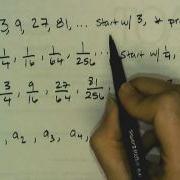 3, 9, 27, 81, ... start w/ 3, * pr
1/4, 1/16, 1/64, 1/256, ... start w/ 1/4,
3/4, 9/16, 27/64, 81/256
, a₂, a₃, a₄,